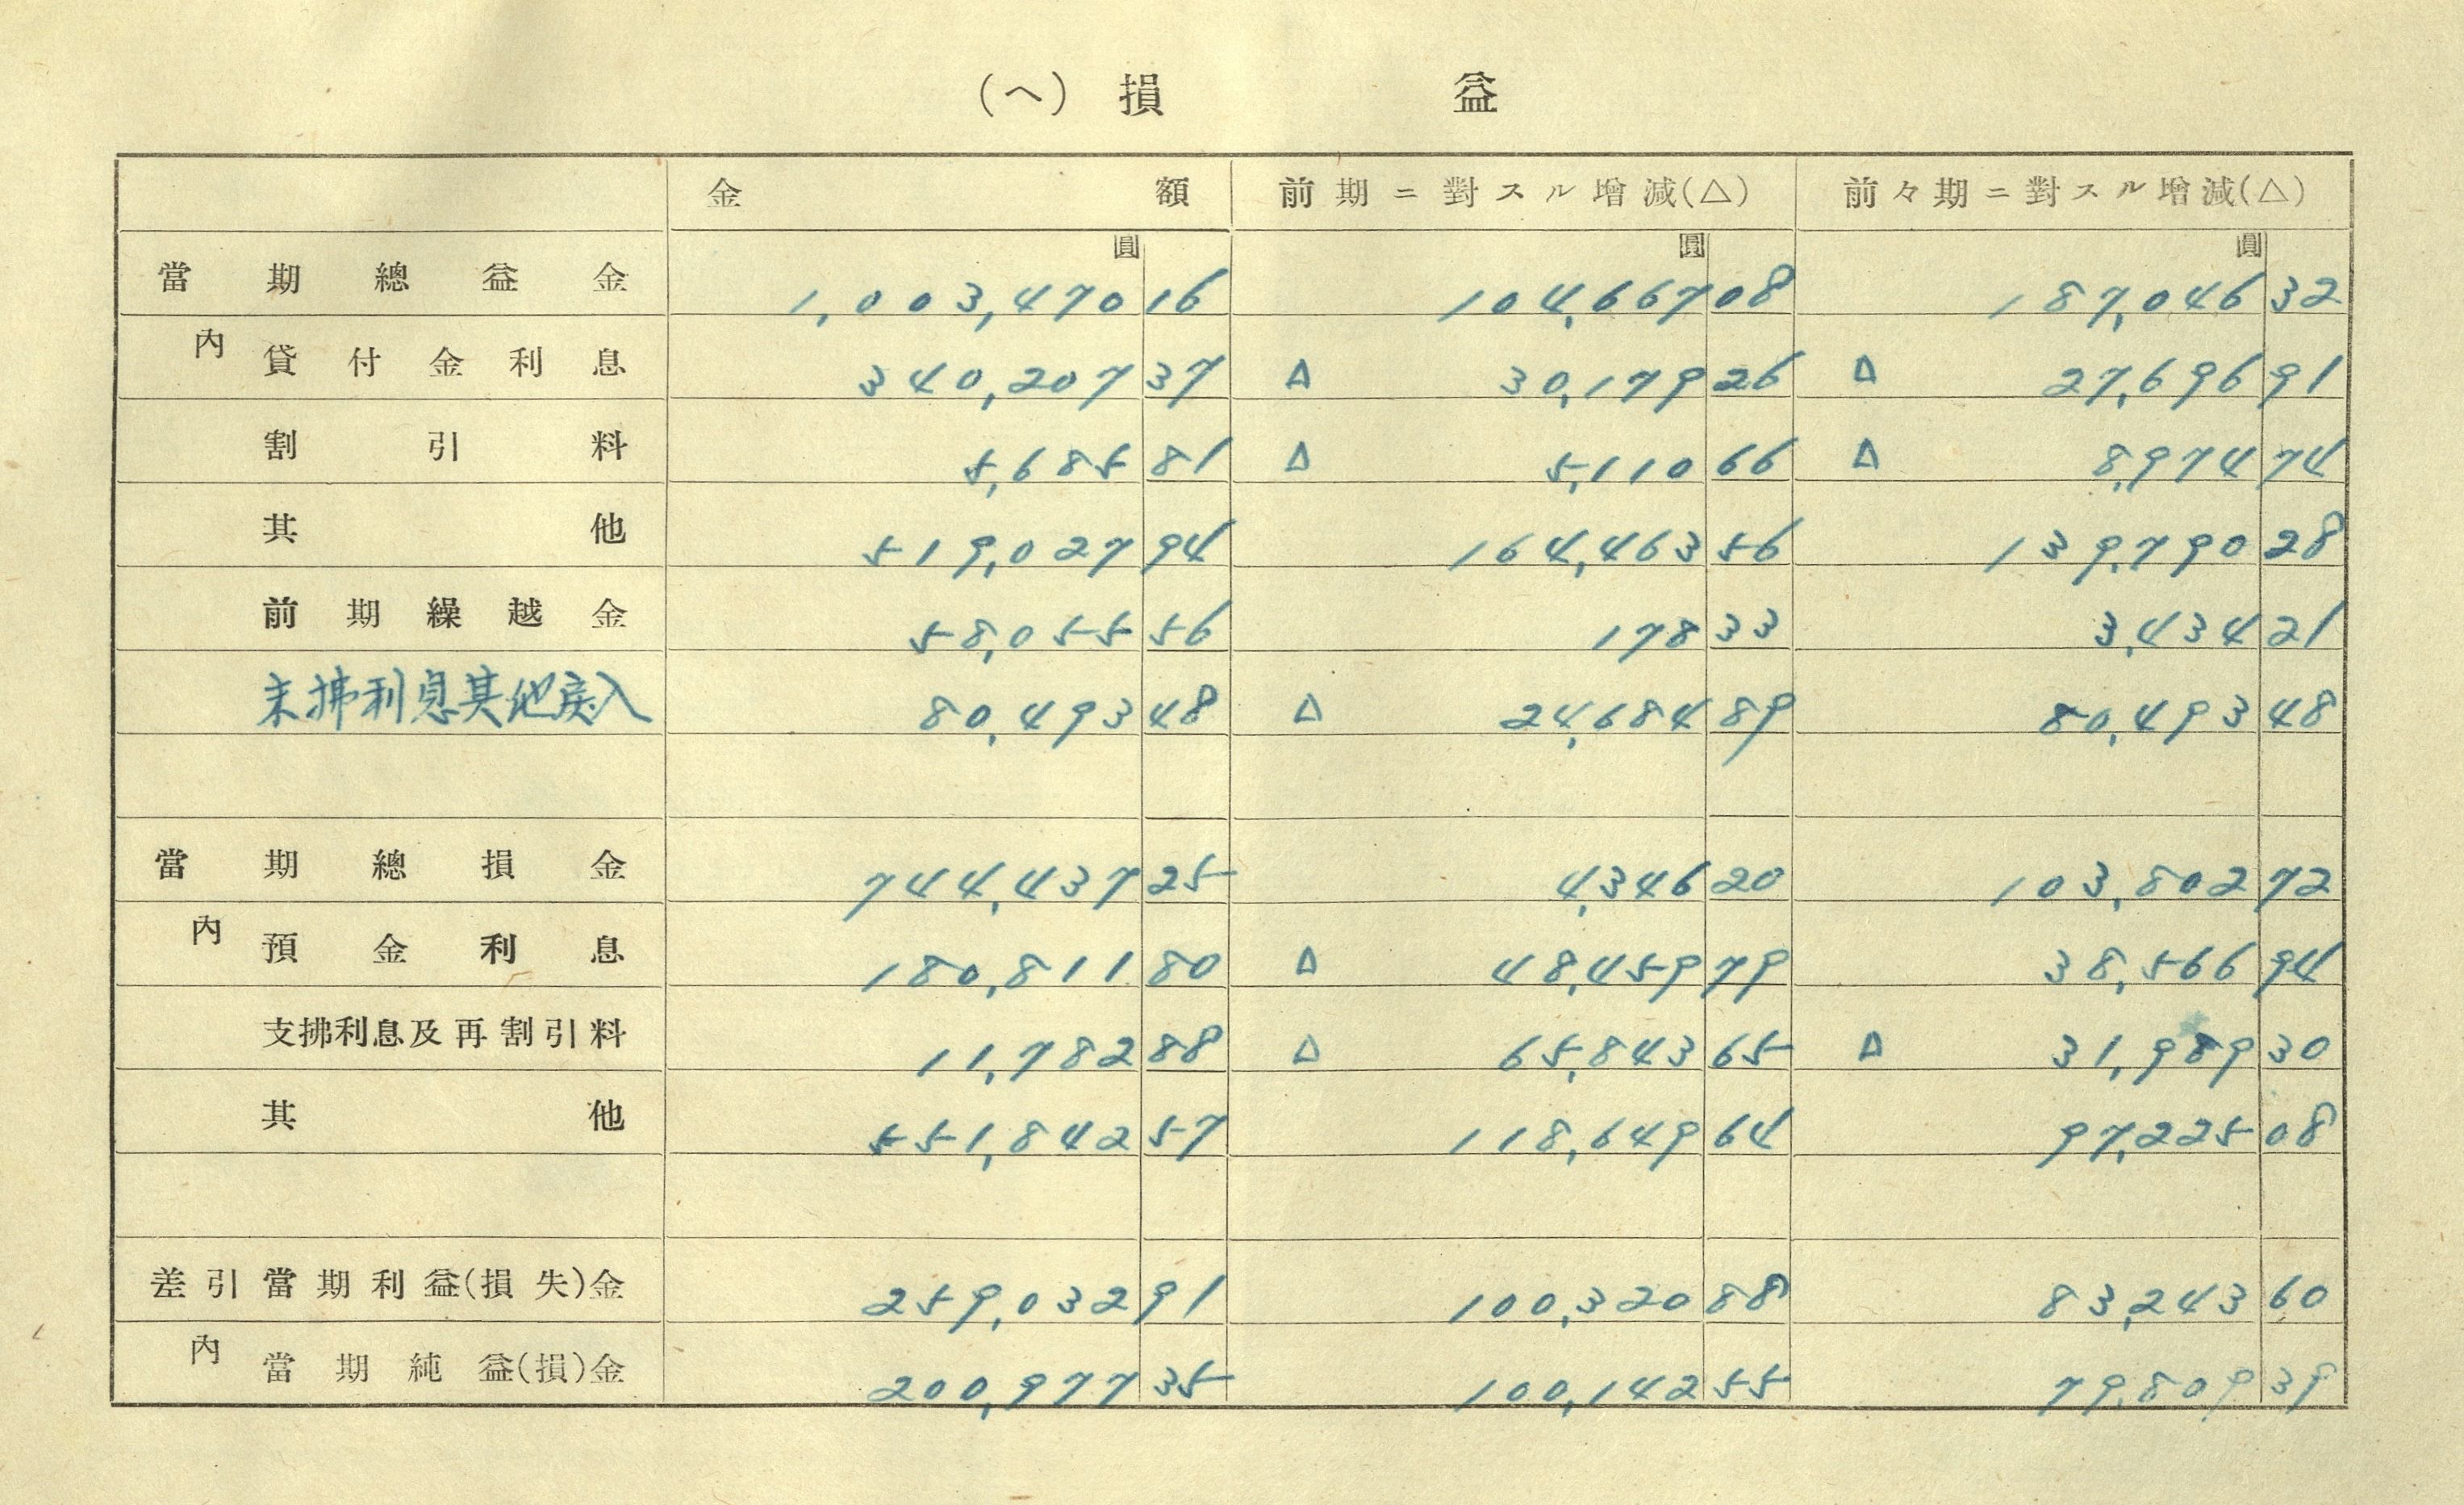 (ヘ) 損 益
金額 前期ニ對スル增減(△) 前々期ニ對スル增減(△)
圓 圓 圓
當期總益金 1,003,470 16 104,667 08 187,046 32
內 貸付金利息 340,207 37 △ 30,179 26 △ 27,696 91
割引料 5,685 81 △ 5,110 66 △ 8,974 74
其他 519,027 94 164,463 56 139,790 28
前期繰越金 58,055 56 178 33 3,434 21
未拂利息其他戻入 80,493 48 △ 24,684 89 80,493 48
當期總損金 744,437 25 4,346 20 103,802 72
內 預金利息 180,811 80 △ 48,459 79 38,566 94
支拂利息及再割引料 11,782 88 △ 65,843 65 △ 31,989 30
其他 551,842 57 118,649 64 97,225 08
差引當期利益(損失)金 259,032 91 100,320 88 83,243 60
內 當期純益(損)金 200,977 35 100,142 55 79,809 39